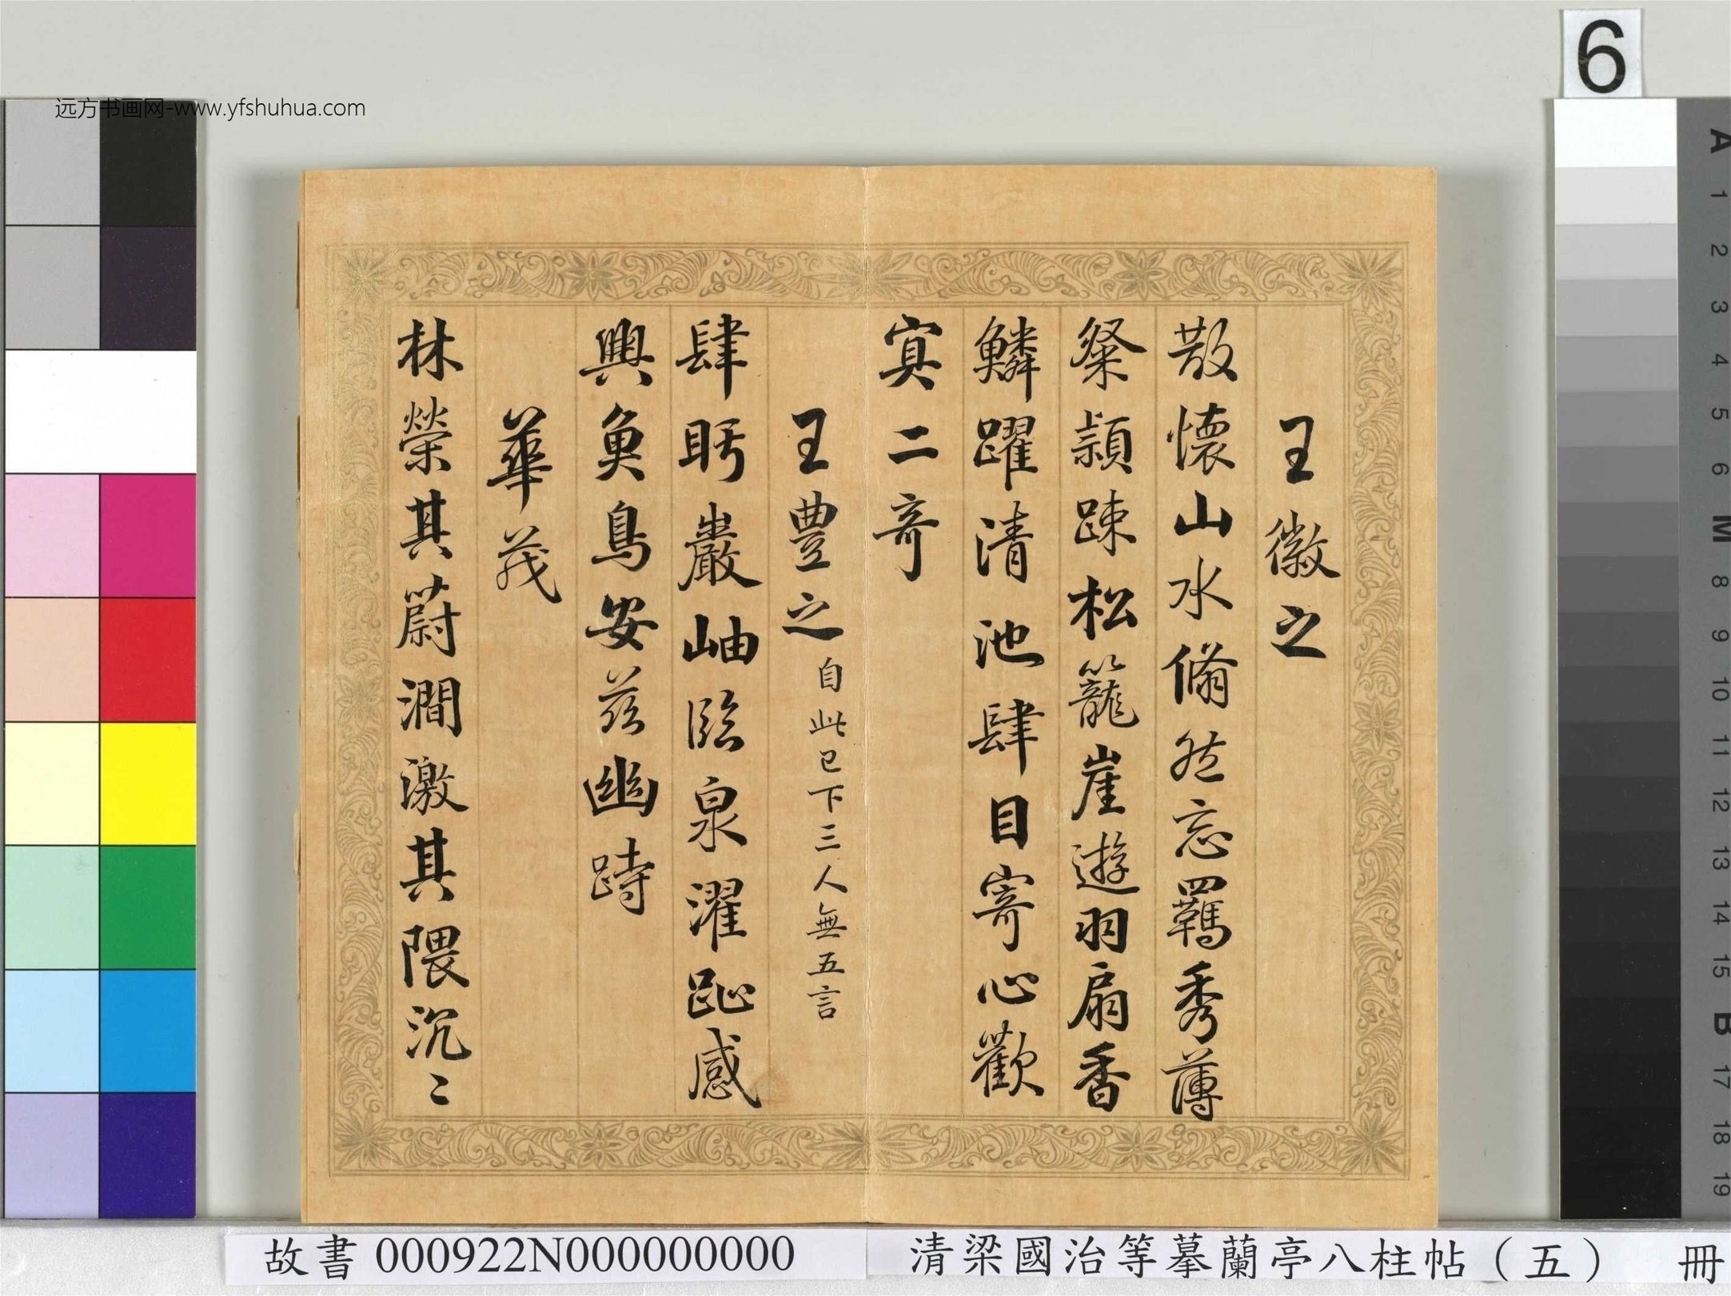 远方书画网-www.yfshuhua.com
6
王徽之
散懷山水翛然忘羈秀薄
粲潁踈松籠崖遊羽扇香
鱗躍清池肆目寄心歡
寘二奇
王豊之自此已下三人無五言
肆眄巖岫臨泉濯趾感
興魚鳥安茲幽跱
華茂
林榮其蔚澗激其隈沉〻
故書 000922N000000000
清梁國治等摹蘭亭八柱帖（五） 冊
A 1 2 3 4 5 6 M 8 9 10 11 12 13 14 15 B 17 18 19